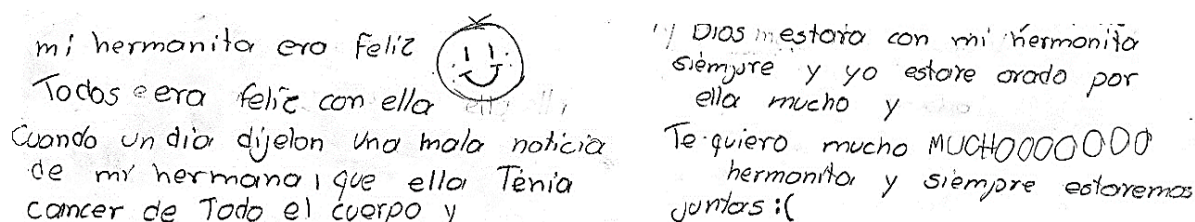 mi hermanita era feliz
Todos era feliz con ella
Cuando un dia dijelon una mala noticia
de mi hermana, que ella Tenia
cancer de Todo el cuerpo y
Dios estara con mi hermanita
siempre y yo estare orado por
ella mucho y
Te quiero mucho MUCHOOOOOOO
hermanita y siempre estaremos
juntas :(